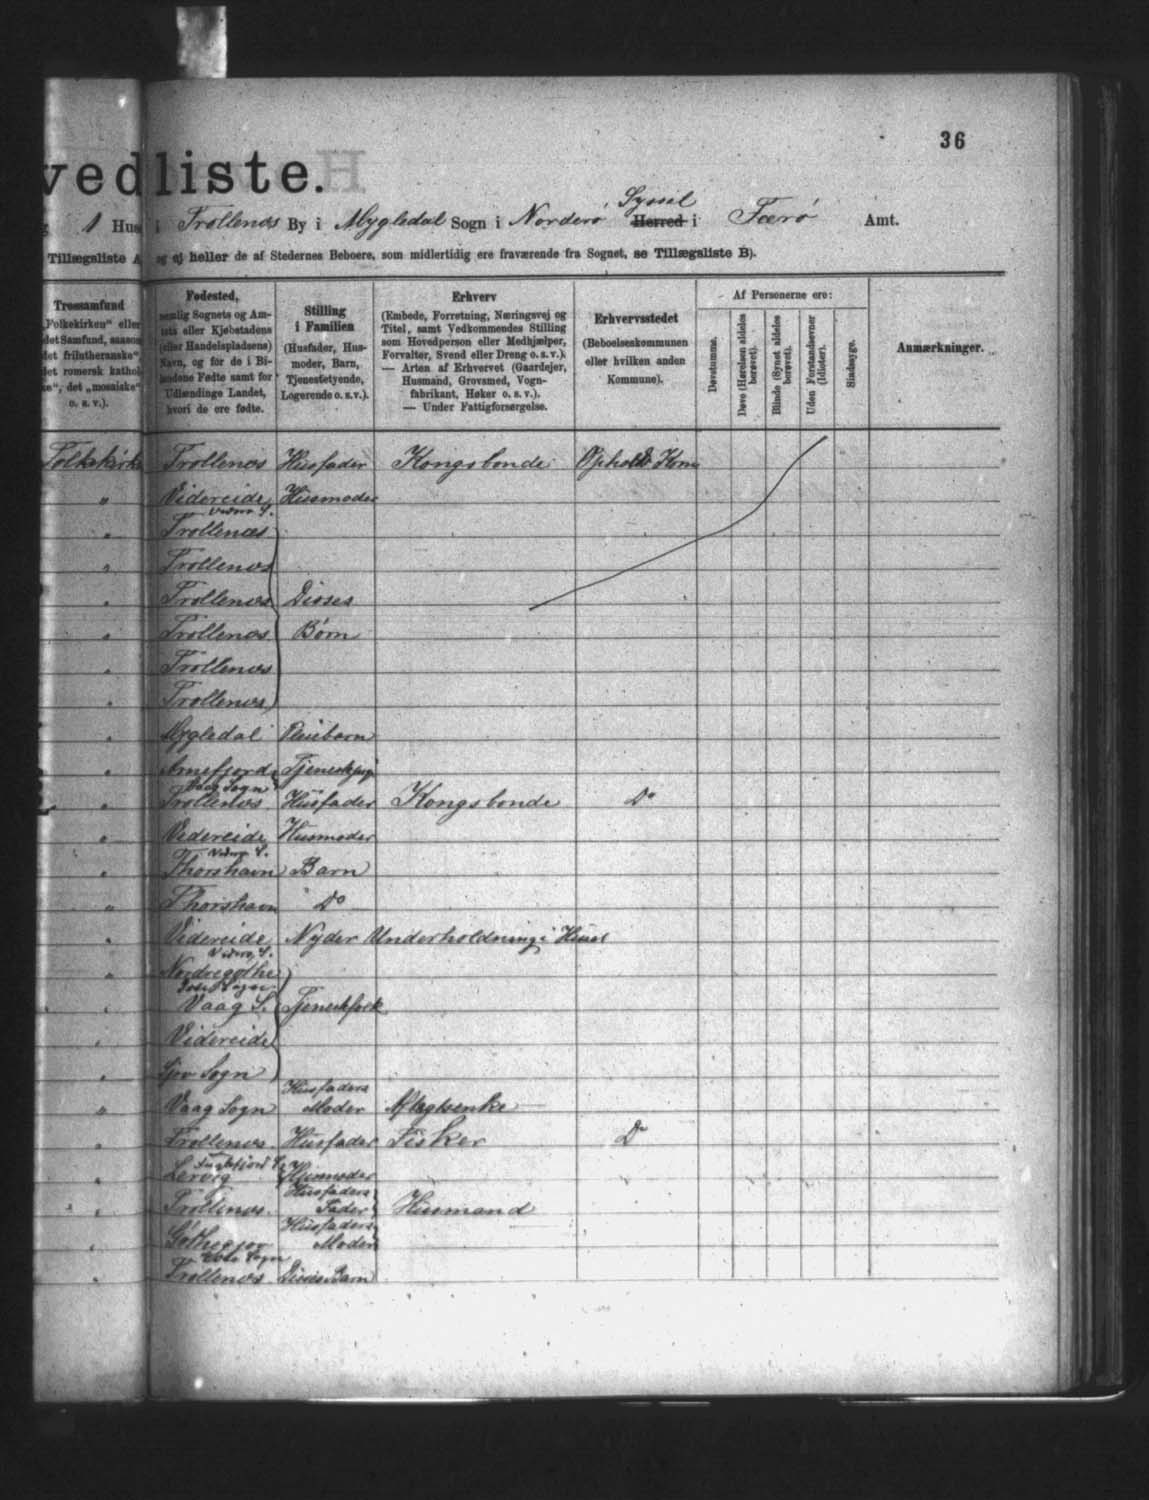 36
vedliste.
1 Hus i Trøllenæs By i Mygledal Sogn i Norderø Syssel Herred i Færø Amt.
Tillægsliste A og ej heller de af Stedernes Beboere, som midlertidig ere fraværende fra Sognet, se Tillægsliste B).
Trossamfund
„Folkekirken“ eller
det Samfund, saasom
det frilutheranske“,
det romersk kathol
ke“, det „mosaiske“
o. s. v.).
Fødested,
nemlig Sognets og Am-
tets eller Kjøbstadens
(eller Handelspladsens)
Navn, og for de i Bi-
landene Fødte samt for
Udlændinge Landet,
hvori de ere fødte.
Stilling
i Familien
(Husfader, Hus-
moder, Barn,
Tjenestetyende,
Logerende o. s. v.).
Erhverv
(Embede, Forretning, Næringsvej og
Titel, samt Vedkommendes Stilling
som Hovedperson eller Medhjælper,
Forvalter, Svend eller Dreng o. s. v.).
— Arten af Erhvervet (Gaardejer,
Husmand, Grovsmed, Vogn-
fabrikant, Høker o. s. v.).
— Under Fattigforsørgelse.
Erhvervsstedet
(Beboelseskommunen
eller hvilken anden
Kommune).
Af Personerne ere:
Døvstumme.
Døve (Hørelsen aldeles
berøvet).
Blinde (Synet aldeles
berøvet).
Uden Forstandsevner
(Idioter).
Sindssyge.
Anmærkninger.
Folkekirke Trøllenæs Husfader Kongsbonde Opholds Kom
" Videreide Husmoder
Viderø S.
" Trøllenæs
" Trøllenæs
" Trøllenæs Disses
" Trøllenæs Børn
" Trøllenæs
" Trøllenæs
" Mygledal Pleiebarn
" Arnefjord Tjenestepige
Vaag Sogn
" Trøllenæs Husfader Kongsbonde Do
" Videreide Husmoder
Viderø S.
" Thorshavn Barn
" Thorshavn Do
" Videreide Nyder Underholdning i Huset
Viderø S.
" Nordregøthe
" Vaag S. Tjenestefolk
" Videreide
" Sogn
Husfaders
" Vaag Sogn Moder Aftægtsenke
" Trøllenæs Husfader Fisker Do
" Lervig Husmoder
Husfaders
" Trøllenæs Fader Husmand
Husfaders
" Moder
Sogn
" Trøllenæs Disses Barn